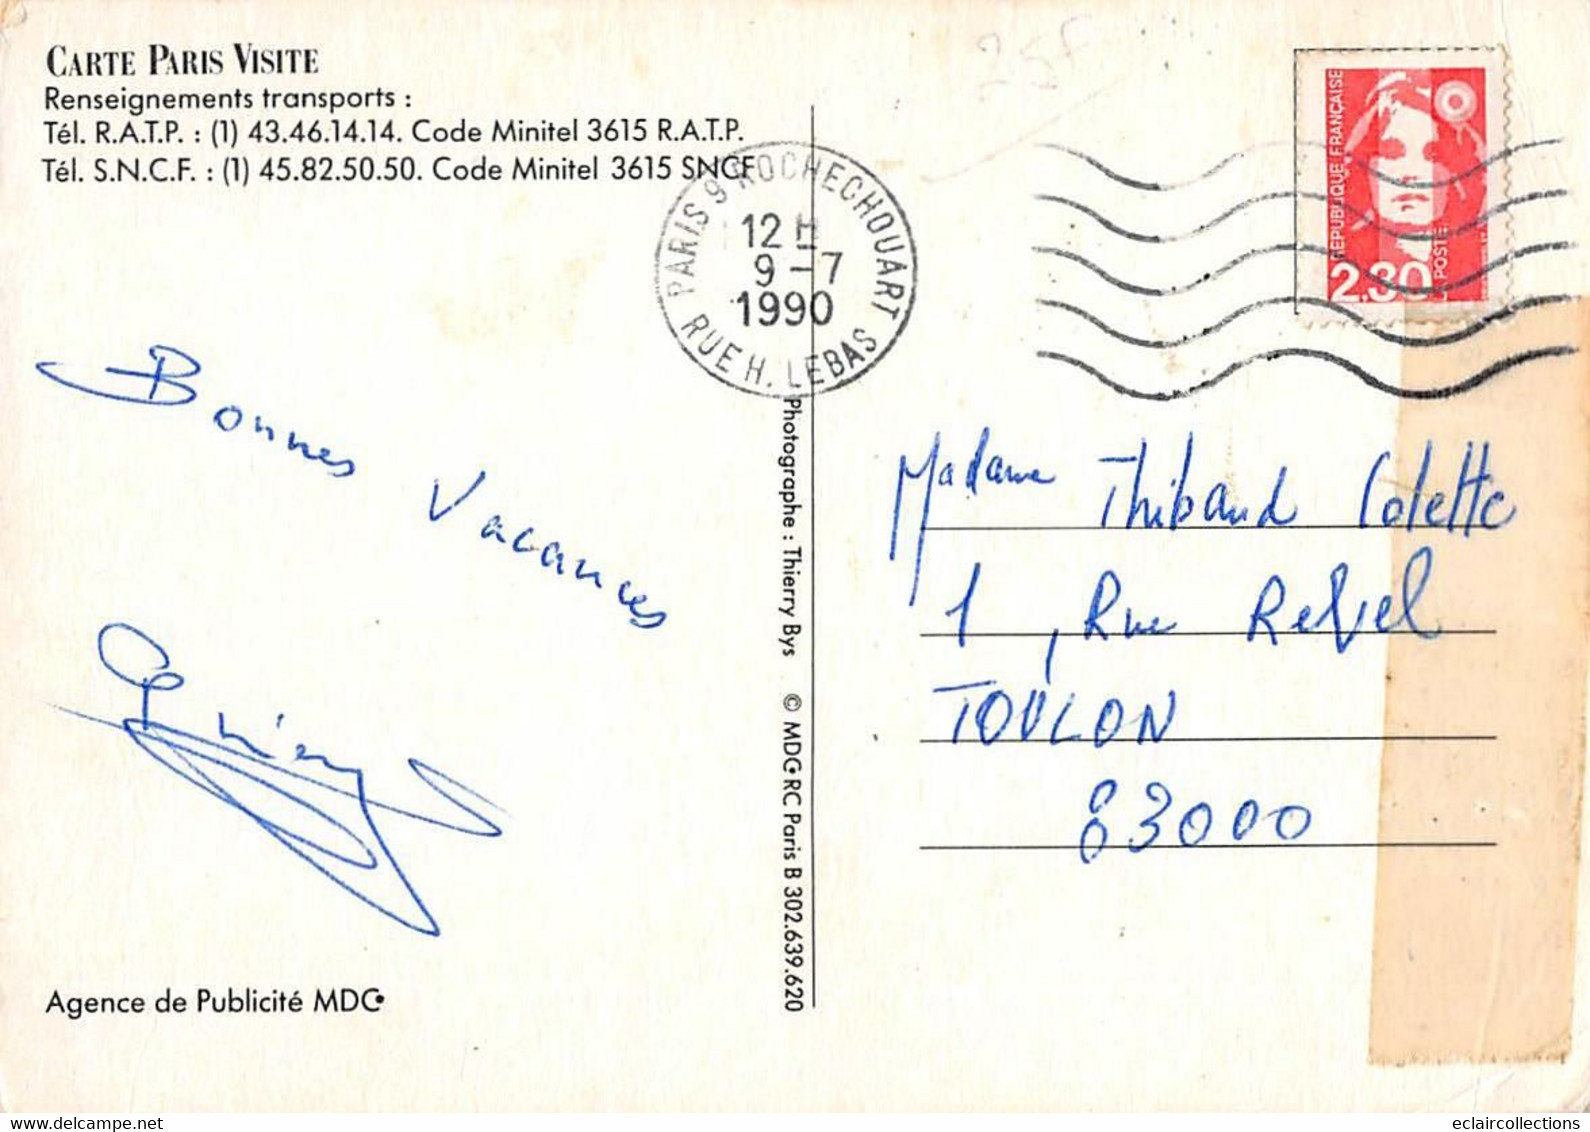 CARTE PARIS VISITE
Renseignements transports :
Tél. R.A.T.P. : (1) 43.46.14.14. Code Minitel 3615 R.A.T.P.
Tél. S.N.C.F. : (1) 45.82.50.50. Code Minitel 3615 SNCF
25F
PARIS 9 ROCHECHOUART
12 H
9-7
1990
RUE H. LEBAS
REPUBLIQUE FRANÇAISE
2.30
POSTE
Bonnes Vacances
Agence de Publicité MDC
Photographe : Thierry Bys © MDC RC Paris B 302.639.620
Madame Thibaud Colette
1, Rue Revel
TOULON
83000
delcampe.net
eclaircollections